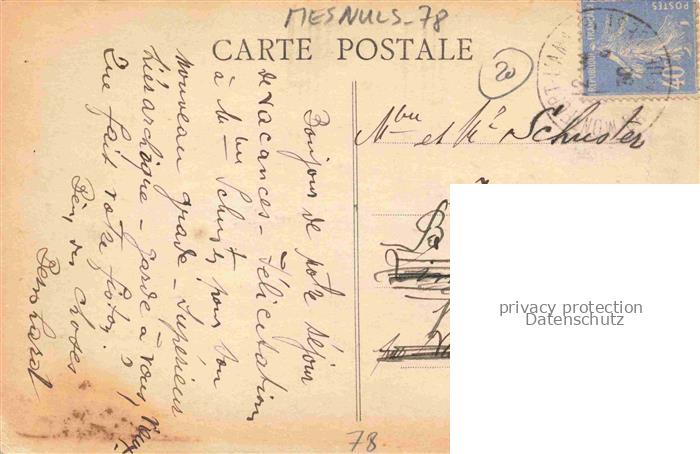 MESNULS-78
CARTE POSTALE
20
POSTES
RÉPUBLIQUE FRANÇAISE
40c
Mme et Mr Schuster
Bonjour de notre séjour
de vacances - Félicitations
à Mme Schuster pour son
nouveau grade - Supérieur
hiérarchique - garde à vous,
Que fait votre fiston ?
Bien des choses
78
privacy protection
Datenschutz